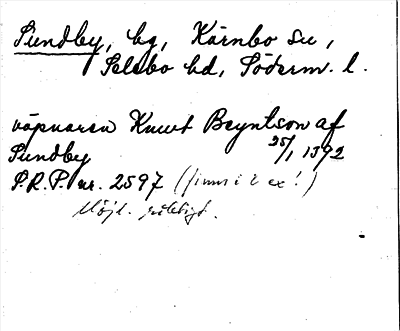 Sundby, hg, Kärnbo sn,
Selebo hd, Söderm. l.
väpnaren Knut Beyntson af
Sundby 25/1 1392
S.R.P. nr. 2597 (finns i 2 ex!)
Möjl.